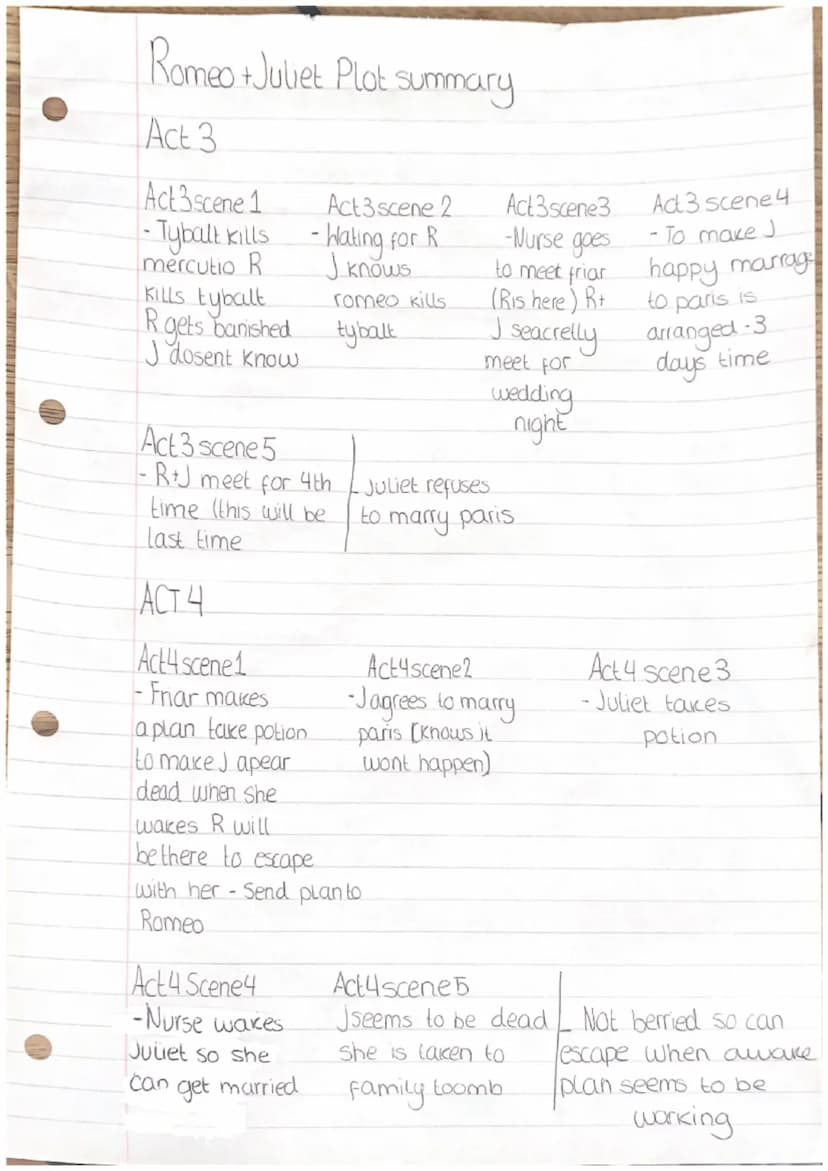 Romeo + Juliet Plot summary
Act 3
Act 3 scene 1
- Tybalt kills
mercutio R
kills tybalt
R gets banished
J dosent know
Act 3 scene 2
- Wating for R
J knows
romeo kills
tybalt
Act 3 scene 3
- Nurse goes
to meet friar
(R is here) R+
J seacrelly
meet for
wedding
night
Act 3 scene 4
- To make J
happy marrage
to paris is
arranged - 3
days time
Act 3 scene 5
- R+J meet for 4th
time (this will be
last time
- Juliet refuses
to marry paris
ACT 4
Act 4 scene 1
- Friar makes
a plan take potion
to make J apear
dead when she
wakes R will
be there to escape
with her - Send plan to
Romeo
Act 4 scene 2
- J agrees to marry
paris [knows it
wont happen)
Act 4 scene 3
- Juliet takes
potion
Act 4 Scene 4
- Nurse wakes
Juliet so she
can get married
Act 4 scene 5
J seems to be dead
she is taken to
family toomb
- Not berried so can
escape when awake
plan seems to be
working